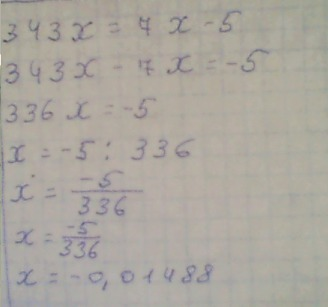 343x = 7x - 5
343x - 7x = -5
336x = -5
x = -5 : 336
x = -5/336
x = -5/336
x = -0,01488